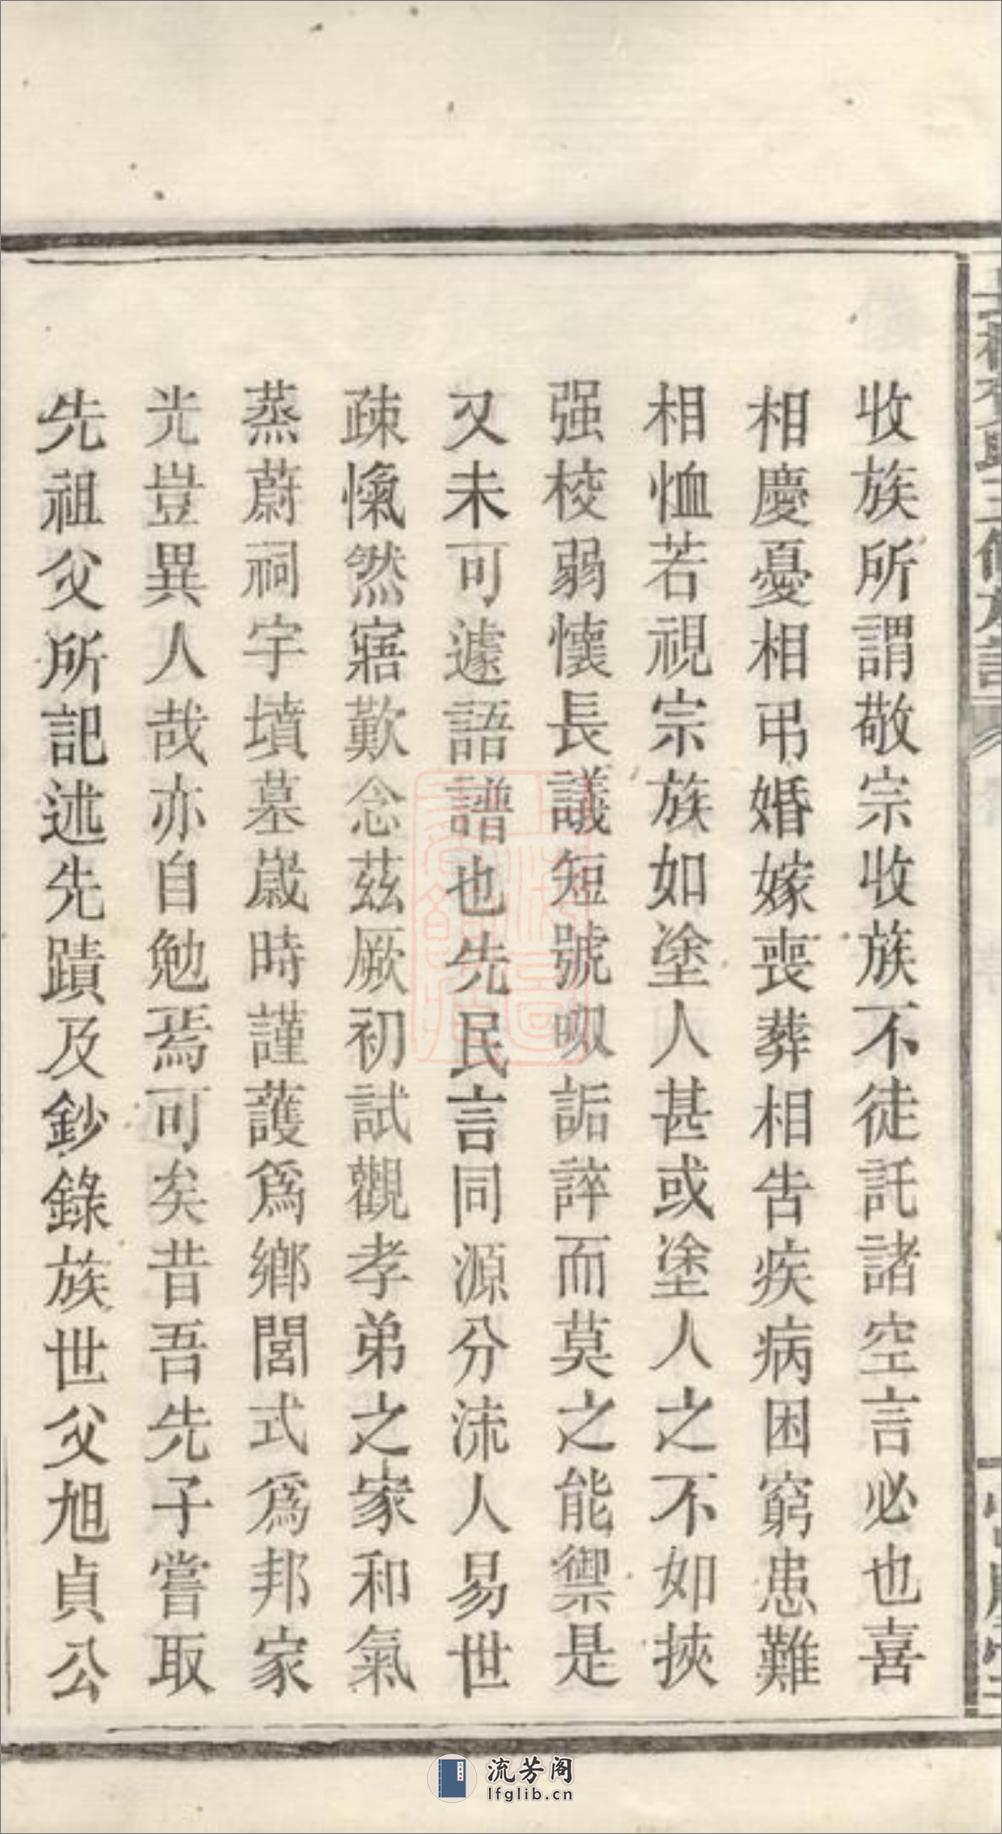 收族所謂敬宗收族不徒託諸空言必也喜
相慶憂相弔婚嫁喪葬相告疾病困窮患難
相恤若視宗族如塗人甚或塗人之不如挾
强校弱懷長議短號呶詬誶而莫之能禦是
又未可遽語譜也先民言同源分沭人易世
疎愾然寤歎念茲厥初試觀孝弟之家和氣
蒸蔚祠宇墳墓歲時謹護爲鄉閭式爲邦家
光豈異人哉亦自勉焉可矣昔吾先子嘗取
先祖父所記述先蹟及鈔錄族世父旭貞公
流芳阁
lfglib.cn